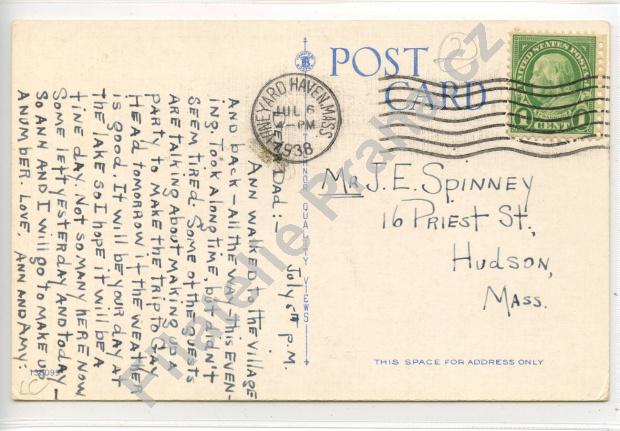 POST
CARD
VINEYARD HAVEN, MASS.
JUL 6
4-PM
1938
UNITED STATES POSTAGE
1 CENT 1
July 6th P.M.
Dear Dad:-
Ann walked to the village
and back - all the way - this even-
ing. Took a long time, but didn't
seem tired. Some of the guests
are talking about making up a
party to make the trip to Gay
Head tomorrow if the weather
is good. It will be your day at
the lake so I hope it will be a
fine day. Not so many here now
some left yesterday and today -
so Ann and I will go to make up
a number. Love, Ann and Amy:
Mr J. E. Spinney
16 Priest St,
Hudson,
Mass.
THIS SPACE FOR ADDRESS ONLY
Filatelie Praha.cz